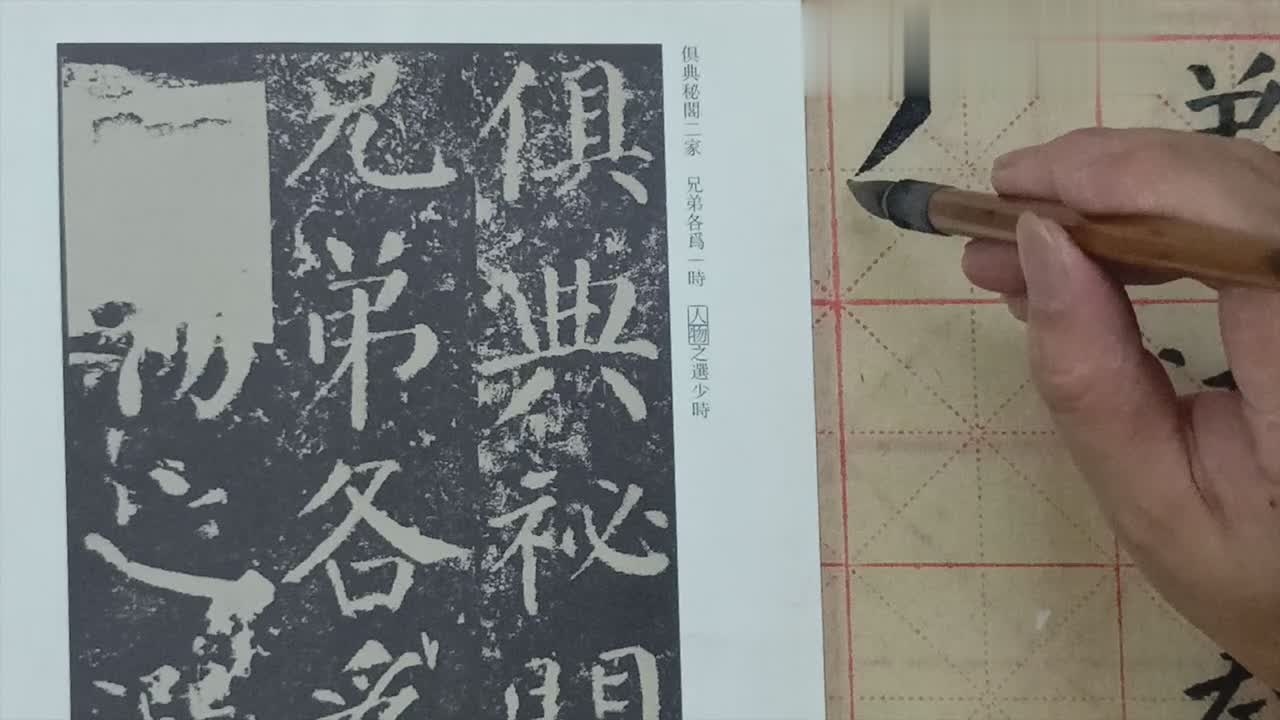 俱典秘閣二家　兄弟各爲一時　人物之選少時
俱典祕閣
兄弟各爲
物之選